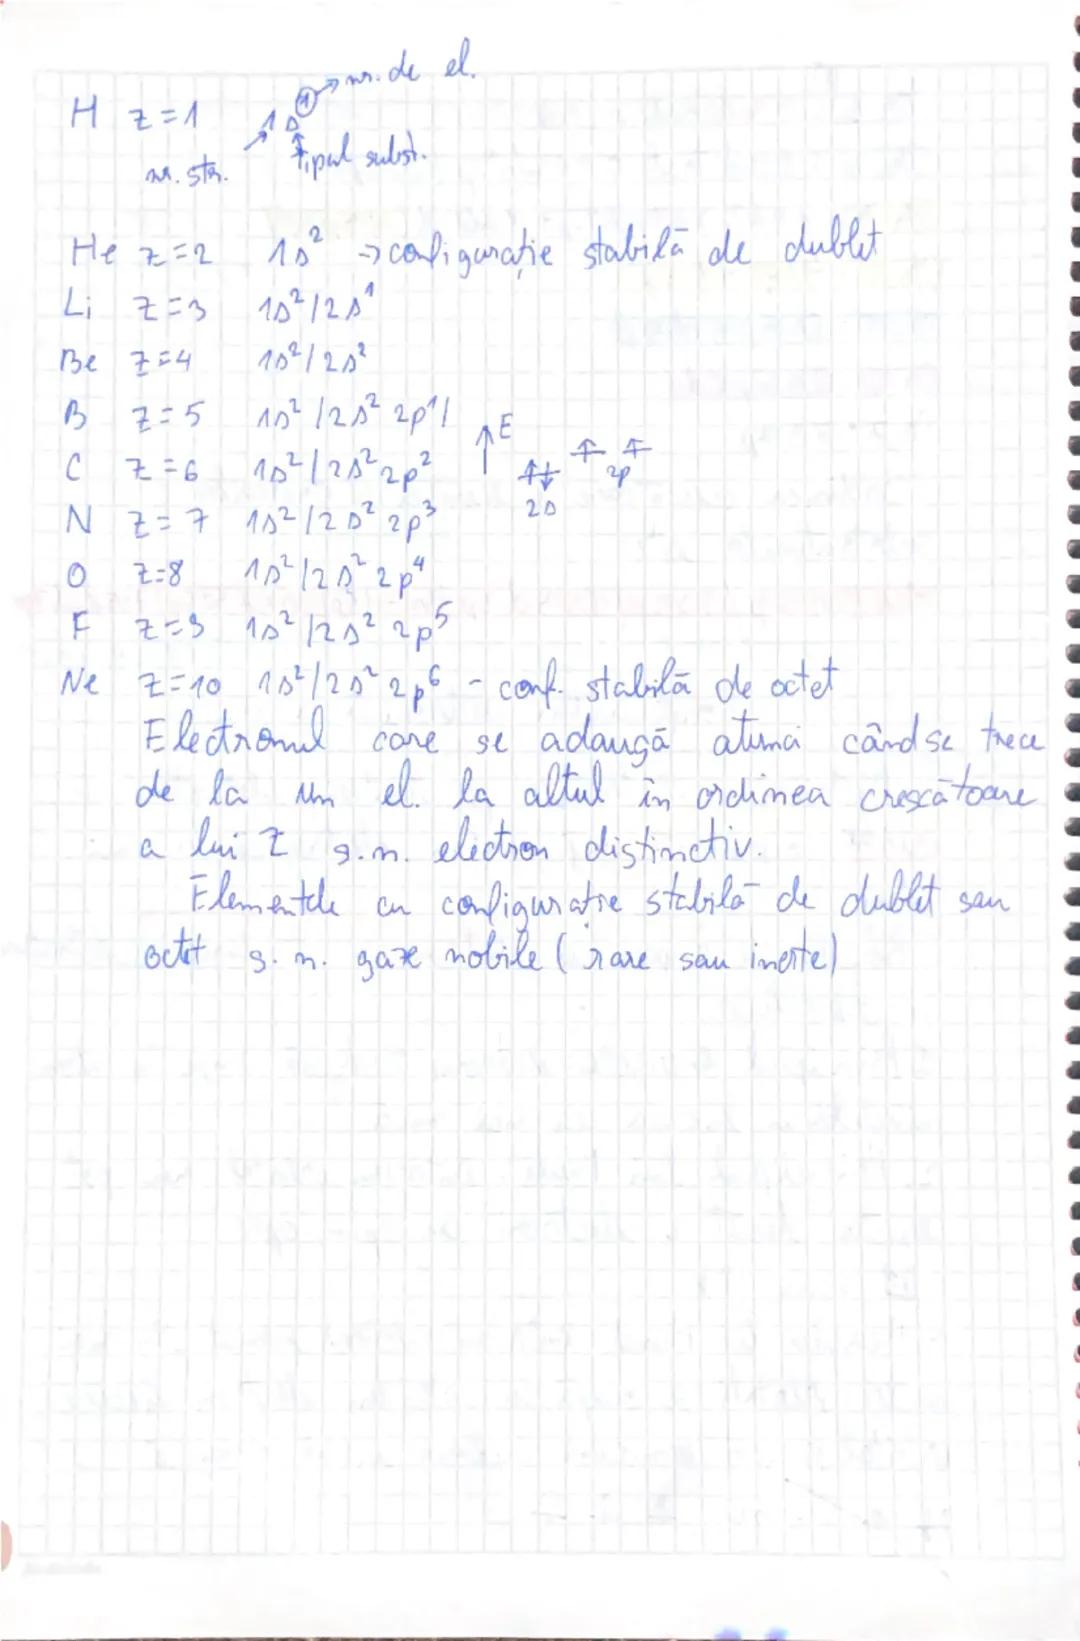 H z=1 1s¹ → nr. de el.
nr. str. tipul subst.
He z=2 1s² → configurație stabilă de dublet
Li z=3 1s²/2s¹
Be z=4 1s²/2s²
B z=5 1s²/2s² 2p¹/ ↑E
C z=6 1s²/2s² 2p² ↑↓ ↑ ↑
2s 2p
N z=7 1s²/2s² 2p³
O z=8 1s²/2s² 2p⁴
F z=9 1s²/2s² 2p⁵
Ne z=10 1s²/2s² 2p⁶ - conf. stabilă de octet
Electronul care se adaugă atunci când se trece
de la un el. la altul în ordinea crescătoare
a lui Z s.n. electron distinctiv.
Elementele cu configurație stabilă de dublet sau
octet s.n. gaze nobile (rare sau inerte)